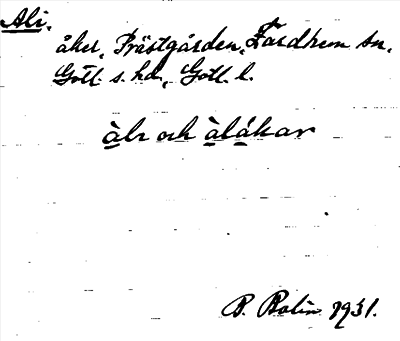 Ali.
åker, Prästgården, Fardhem sn,
Gotl. s. hd, Gotl. l.
àlr och àlákar
P. Bolin 1931.